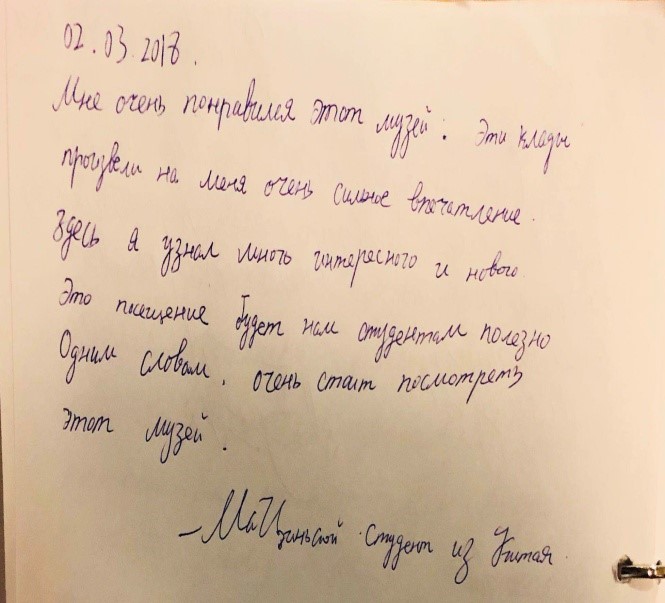 02.03.2018.
Мне очень понравился этот музей. Эти клады
произвели на меня очень сильное впечатление.
Здесь я узнал много интересного и нового.
Это посещение будет нам студентам полезно
Одним словом, очень стоит посмотреть
этот музей.
студент из Китая.